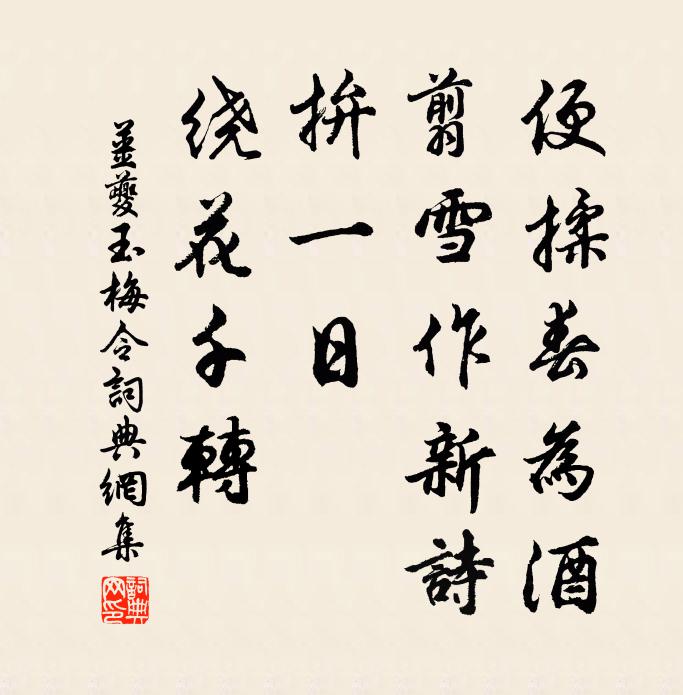 便揉春為酒
翦雪作新詩
拚一日
绕花千轉
姜夔玉梅令詞典網集
詞典网印